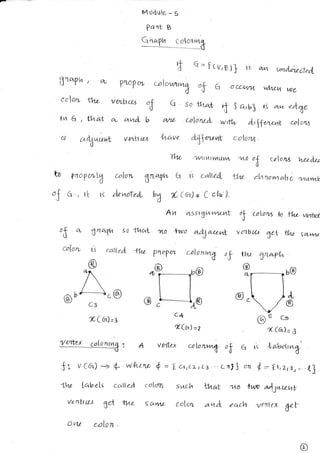 Module - 5
Part B
Graph coloring
If G = {(V,E)} is an undirected
graph, a proper colouring of G occurs when we
color the vertices of G so that if {a,b} is an edge
in G, that a and b are colored with different colors
adjacent vertices have different colors.
The minimum no of colors needed
to properly color graph G is called the chromatic numb
of G, it is denoted by χ(G) = (chi).
An assignment of colors to the vertices
of a graph so that no two adjacent vertices get the same
color is called the proper coloring of the graph
R R R
a a b B a b B
b c G
B c d c d G
C3 B R B e
C4 G C5
χ(G)=3 χ(G)=2 χ(G)=3
vertex coloring : A vertex coloring of G is labeling
f: V(G) → ¢ where ¢ = {c1,c2,c3 ... cn} or ¢ = {1,2,3,..l}
the labels called colors such that no two adjacent
vertices get the same color and each vertex get
one color.
①